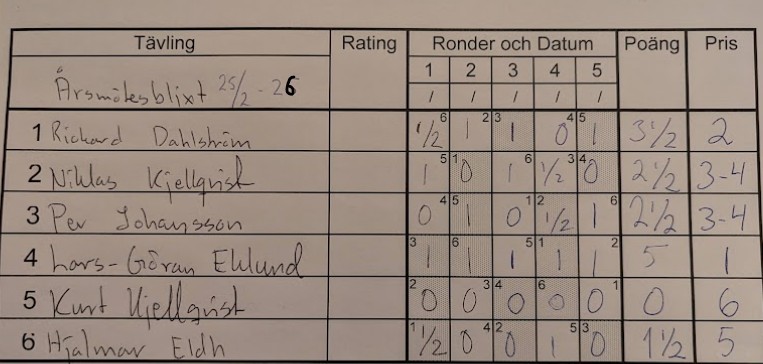 Tävling Rating Ronder och Datum Poäng Pris
1 2 3 4 5
Årsmötesblixt 25/2 - 26 / / / / /
1 Rickard Dahlström 1/2 6 1 2 3 1 0 4 5 1 3 1/2 2
2 Niklas Kjellqvist 1 5 1 0 1 6 1/2 3 4 0 2 1/2 3-4
3 Per Johansson 0 4 5 1 0 1 2 1/2 1 6 2 1/2 3-4
4 Lars-Göran Eklund 3 1 6 1 1 5 1 1 1 2 5 1
5 Kurt Kjellqvist 2 0 0 3 4 0 6 0 0 1 0 6
6 Hjalmar Eldh 1 1/2 0 4 2 0 1 5 3 0 1 1/2 5